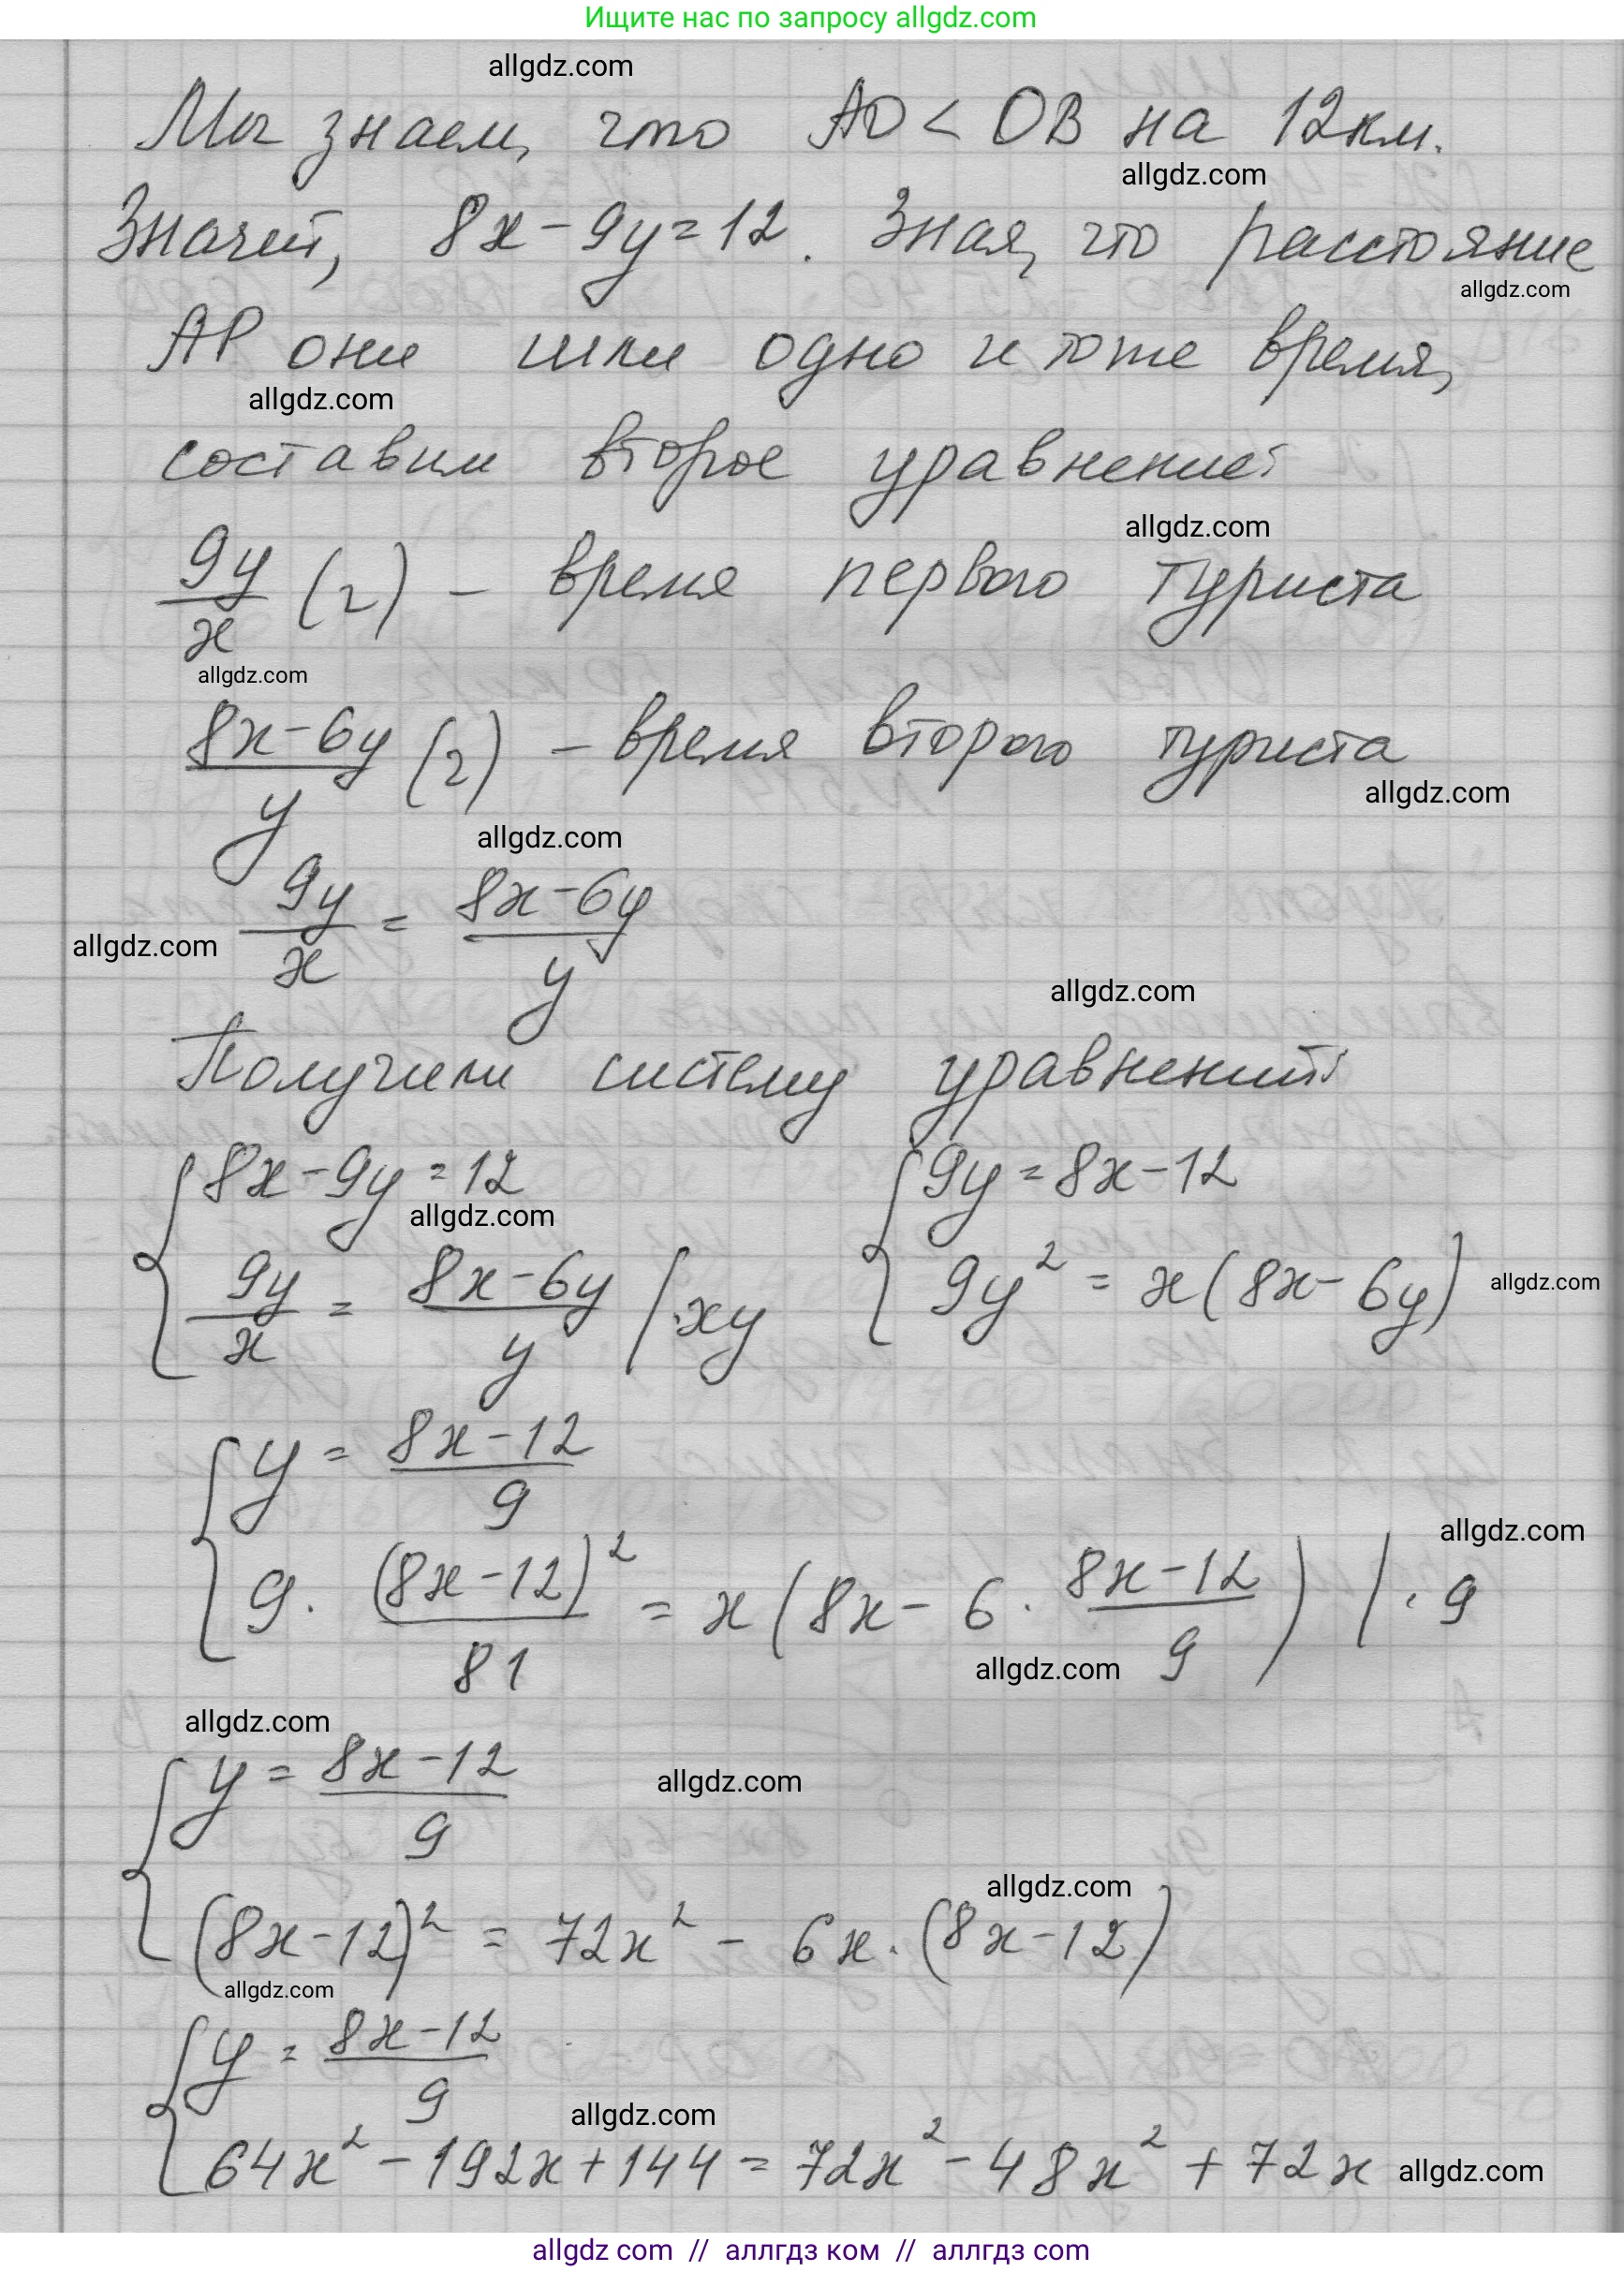 Ищите нас по запросу allgdz.com
allgdz.com
Мы знаем, что AO < OB на 12км.
allgdz.com
Значит, 8x - 9y = 12. Зная, что расстояние
allgdz.com
AP они шли одно и тоже время,
allgdz.com
составим второе уравнение:
allgdz.com
9y/x (г) - время первого туриста
allgdz.com
8x-6y/y (г) - время второго туриста
allgdz.com
allgdz.com
9y/x = 8x-6y/y
allgdz.com
allgdz.com
Получили систему уравнений:
{ 8x - 9y = 12 { 9y = 8x - 12
allgdz.com
9y/x = 8x-6y/y | ·xy 9y² = x(8x - 6y)
allgdz.com
{ y = 8x-12/9
allgdz.com
9 · (8x-12)²/81 = x(8x - 6 · 8x-12/9) | · 9
allgdz.com
allgdz.com
{ y = 8x-12/9
allgdz.com
allgdz.com
(8x-12)² = 72x² - 6x · (8x-12)
allgdz.com
{ y = 8x-12/9
allgdz.com
64x² - 192x + 144 = 72x² - 48x² + 72x
allgdz.com
allgdz com // аллгдз ком // аллгдз com